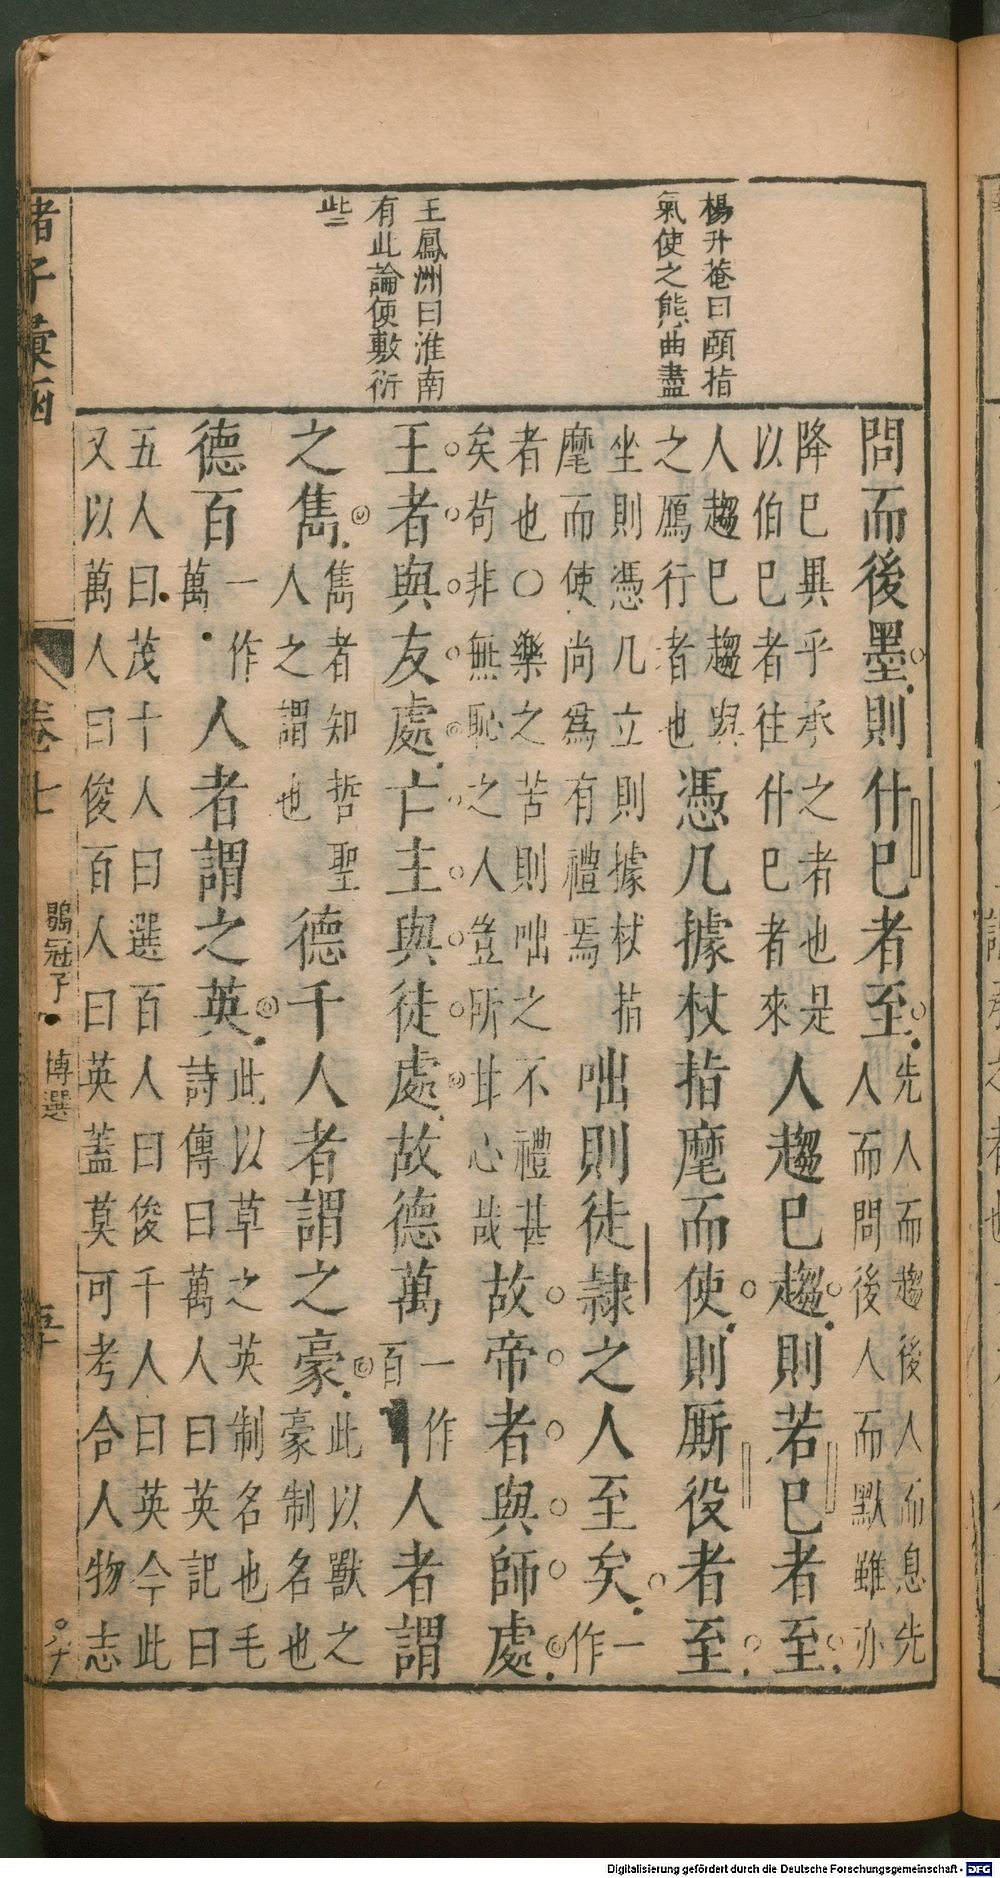 楊升菴曰頤指
氣使之態曲盡
王鳳洲曰淮南
有此論便敷衍
些
問而後墨則什巳者至先人而趨後人而息先
人而問後人而默雖亦
降巳異乎承之者也是
以伯巳者往什巳者來
人趨巳趨則若巳者至
人趨巳趨與
之鴈行者也
憑几據杖指麾而使則厮役者至
坐則憑几立則據杖指
麾而使尚爲有禮焉
咄則徒隷之人至矣一
作
者也〇樂之苦則咄之不禮甚
矣苟非無恥之人豈所甘心哉
故帝者與師處
王者與友處亡主與徒處故德萬一作
百
人者謂
之雋雋者知哲聖
人之謂也
德千人者謂之豪此以獸之
豪制名也
德百一作
萬
人者謂之英此以草之英制名也毛
詩傳曰萬人曰英記曰
五人曰茂十人曰選百人曰俊千人曰英今此
又以萬人曰俊百人曰英蓋莫可考合人物志
諸子彙函
卷七
鶡冠子
博選
Digitalisierung gefördert durch die Deutsche Forschungsgemeinschaft - DFG